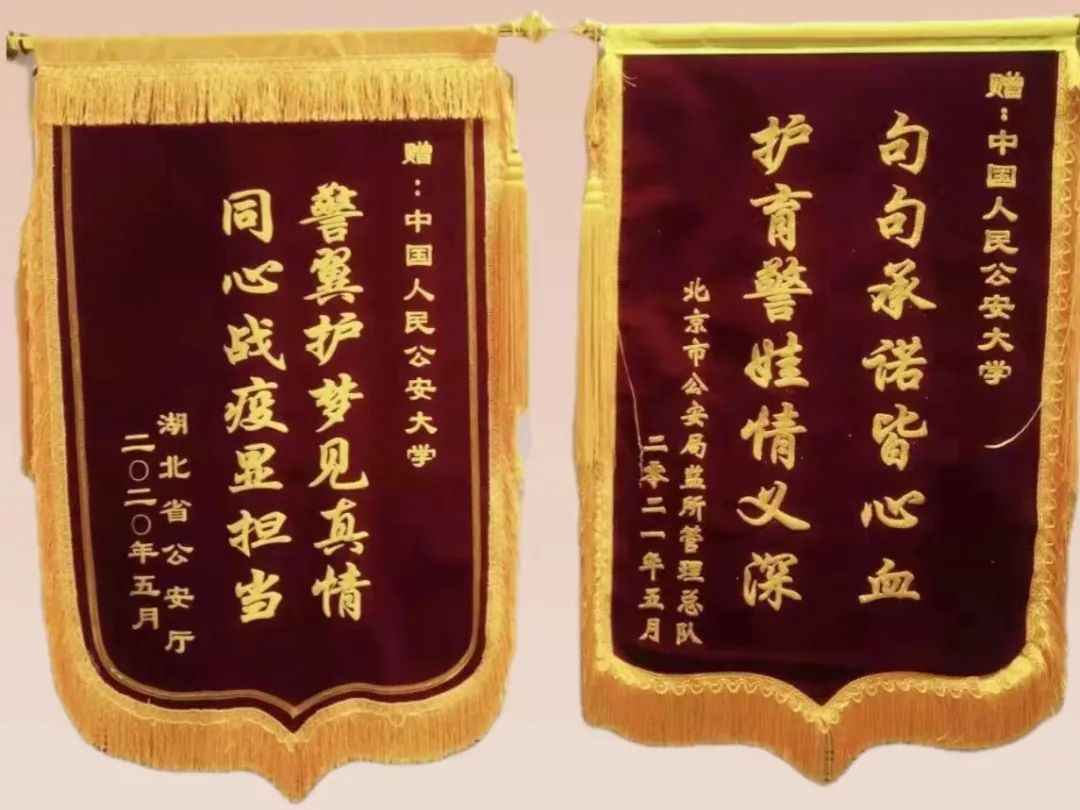 赠：中国人民公安大学
警翼护梦见真情
同心战疫显担当
湖北省公安厅
二〇二〇年五月
赠：中国人民公安大学
句句承诺皆心血
护育警娃情义深
北京市公安局监所管理总队
二零二一年五月